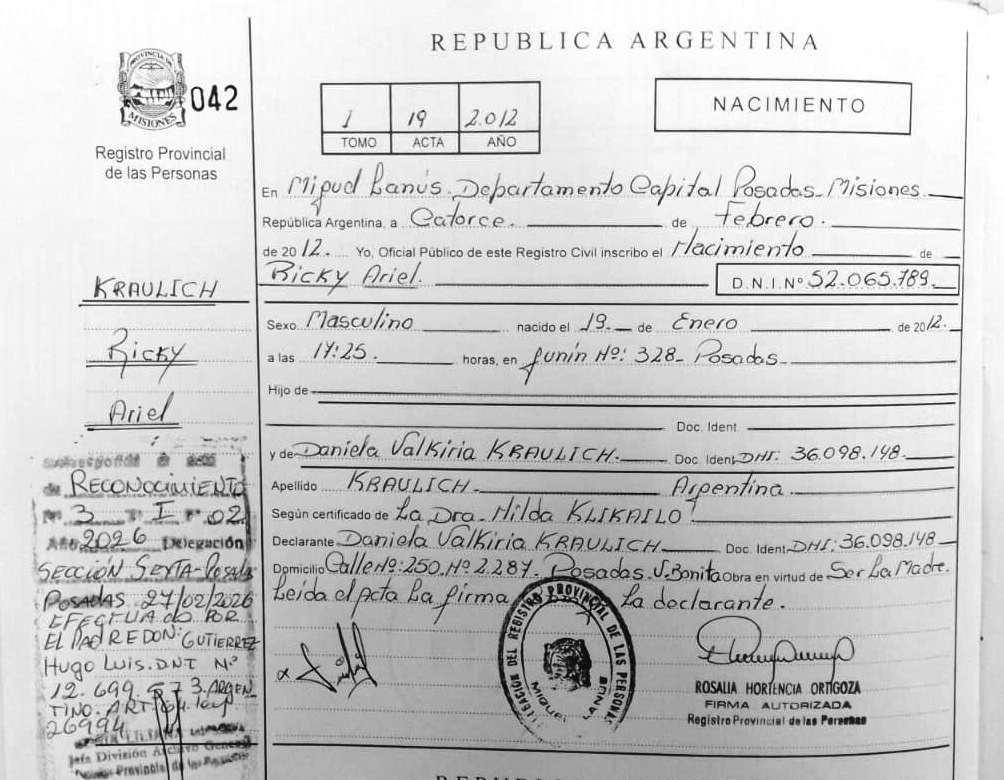 REPUBLICA ARGENTINA
PROVINCIA DE
MISIONES
042
Registro Provincial
de las Personas
1 19 2.012
TOMO ACTA AÑO
NACIMIENTO
En Miguel Lanús. Departamento Capital Posadas Misiones
República Argentina, a Catorce. de Febrero.
de 2012. Yo, Oficial Público de este Registro Civil inscribo el Nacimiento de
Ricky Ariel. D.N.I.Nº 52.065.789.
KRAULICH
Ricky
Ariel
Sexo Masculino nacido el 19. de Enero de 2012.
a las 17:25. horas, en Junín Nº: 328- Posadas
Hijo de
Doc. Ident.
y de Daniela Valkiria KRAULICH. Doc. Ident. DNI: 36.098.148.
Apellido KRAULICH. Argentina.
Según certificado de La Dra. Hilda KLIKAILO
Declarante Daniela Valkiria KRAULICH Doc. Ident. DNI: 36.098.148
Domicilio Calle Nº: 250. Nº 2.287. Posadas. V. Bonita Obra en virtud de Ser La Madre.
Leída el Acta La firma La declarante.
de RECONOCIMIENTO
Nº 3 Tº I Fº 02
Año 2026 Delegación
SECCIÓN SEXTA-Posadas
POSADAS 27/02/2026
EFECTUADO POR
EL PADRE DON: GUTIERREZ
Hugo Luis. DNI Nº
12.699. 3. ARGEN
TINO. ART
26994
Jefa División Archivo General
Registro Provincial de las Personas
DELEGACION DEL REGISTRO PROVINCIAL DE LAS PERSONAS
MIGUEL LANUS
ROSALIA HORTENCIA ORTIGOZA
FIRMA AUTORIZADA
Registro Provincial de las Personas